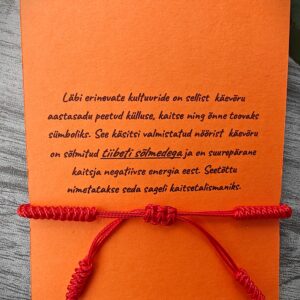 Läbi erinevate kultuuride on sellist käevõru
aastasadu peetud külluse, kaitse ning õnne toovaks
sümboliks. See käsitsi valmistatud nöörist käevõru
on sõlmitud tiibeti sõlmedega ja on suurepärane
kaitsja negatiivse energia eest. Seetõttu
nimetatakse seda sageli kaitsetalismaniks.